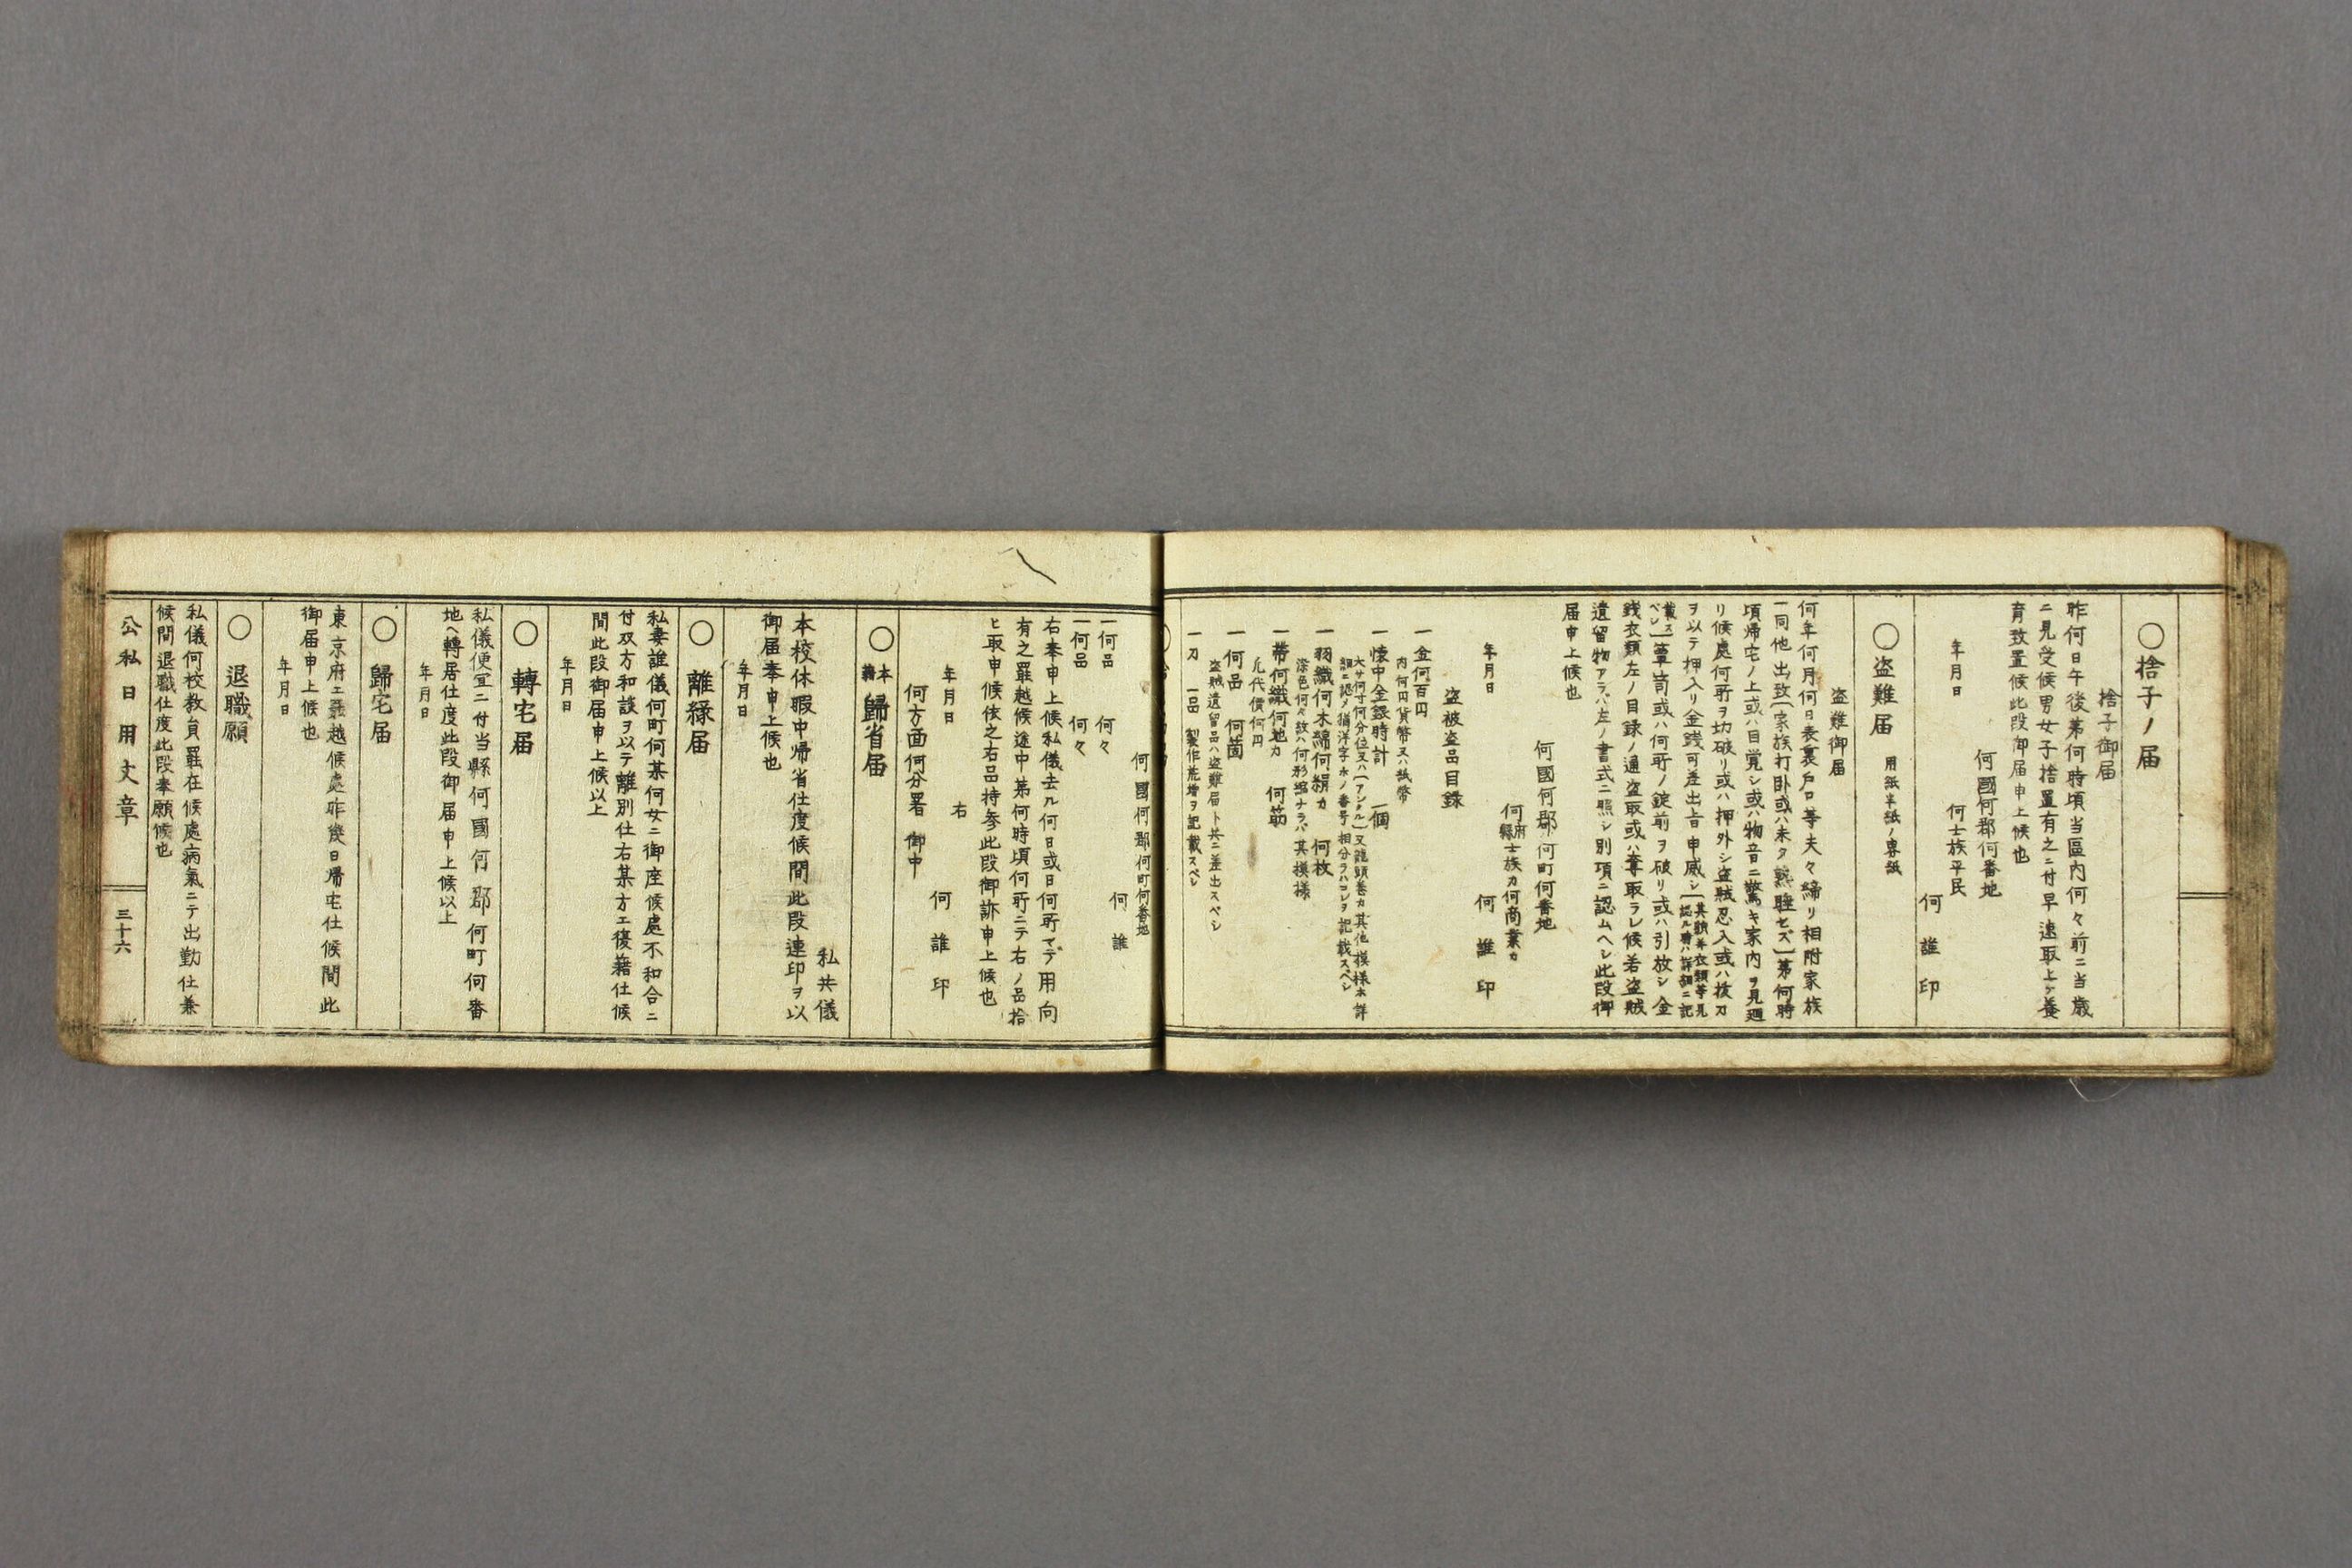 ○捨子ノ届
捨子御届
昨何日午後第何時頃当區内何々前ニ当歳
ニ見受候男女子捨置有之ニ付早速取上ケ養
育致置候此段御届申上候也
何國何郡何番地
何士族平民
年月日
何誰印
○盗難届 用紙半紙ノ専紙
盗難御届
何年何月何日表裏戸口等夫々締リ相附家族
一同他出致〔家族打臥或ハ未タ熟睡セズ〕第何時
頃帰宅ノ上或ハ目覚シ或ハ物音ニ驚キ家内ヲ見廻
リ候處何所ヲ切破リ或ハ押外シ盗賊忍入或ハ抜刀
ヲ以テ押入リ金銭可差出旨申威シ〔其顔并衣類等見認ル時ハ詳細ニ記
載スベシ〕箪笥或ハ何所ノ錠前ヲ破リ或ハ引放シ金
銭衣類左ノ目録ノ通盗取或ハ奪取ラレ候若盗賊
遺留物アラバ左ノ書式ニ照シ別項ニ認ムヘシ此段御
届申上候也
何國何郡何町何番地
何府縣士族カ何商業カ
年月日
何誰印
盗被盗品目録
一金何百円
内何円貨幣又ハ紙幣
一懐中金銀時計 一個
大サ何寸何分位又ハ〔アンクル〕又龍頭巻カ其他模様ホ詳
細ニ認メ猶洋字ホノ番号相分ラハコレヲ記載スベシ
一羽織何木綿何絹カ 何枚
染色何々紋ハ何形縞ナラバ其模様
一帯何織何地カ 何筋
一何品 何箇
凡代價何円
盗賊遺留品ハ盗難届ト共ニ差出スベシ
一刀 一品 製作荒増ヲ記載スベシ
何國何郡何町何番地
何誰
一何品 何々
一何品 何々
右奉申上候私儀去ル何日或日何所マデ用向
有之罷越候途中第何時頃何所ニテ右ノ品拾
ヒ取申候依之右品持参此段御訴申上候也
年月日 右
何誰印
何方面何分署 御中
○歸省届
私共儀
本校休暇中帰省仕度候間此段連印ヲ以
御届奉申上候也
年月日
○離縁届
私妻誰儀何町何某何女ニ御座候處不和合ニ
付双方和談ヲ以テ離別仕右某方エ復籍仕候
間此段御届申上候以上
年月日
○轉宅届
私儀便宜ニ付当縣何國何郡何町何番
地ヘ轉居仕度此段御届申上候以上
年月日
○歸宅届
東京府エ罷越候處昨幾日帰宅仕候間此
御届申上候也
年月日
○退職願
私儀何校教員罷在候處病氣ニテ出勤仕兼
候間退職仕度此段奉願候也
公私日用文章
三十六